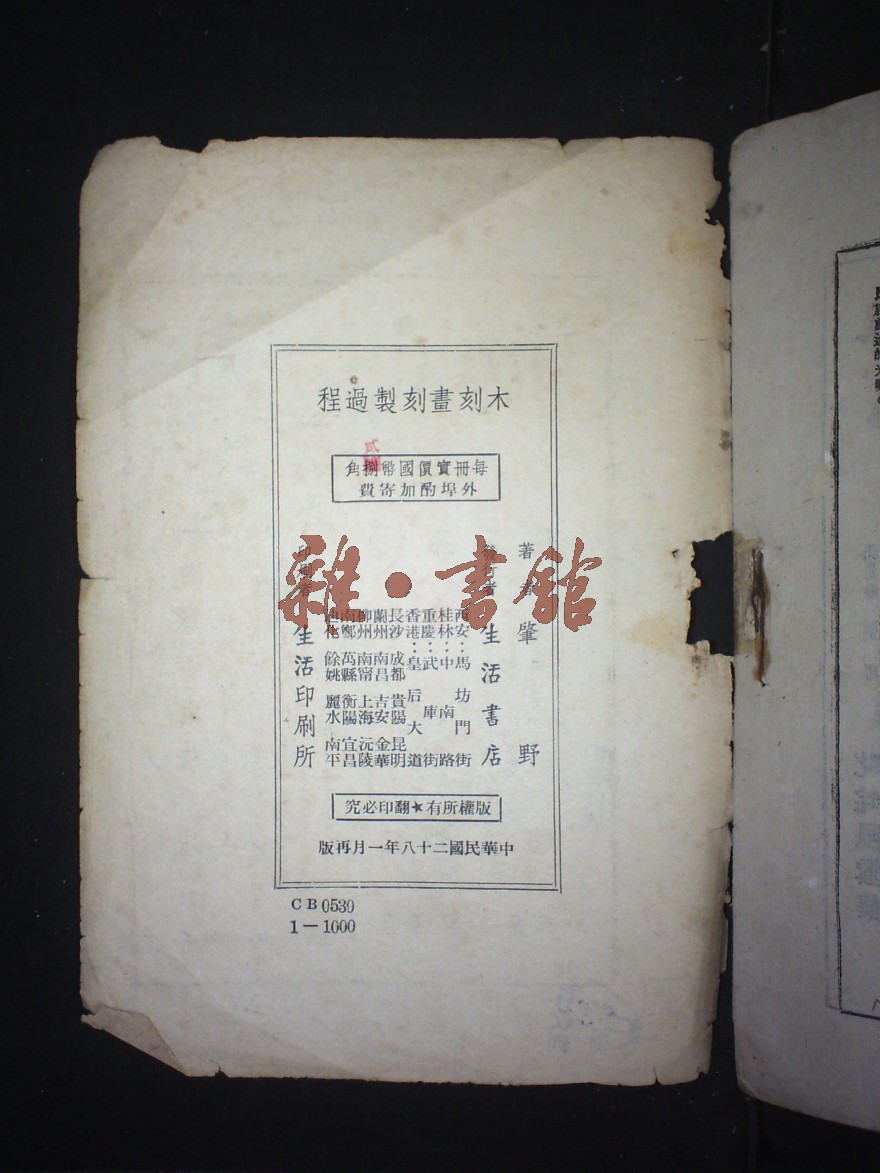 木刻畫刻製過程
貳
每冊實價國幣捌角
外埠酌加寄費
著者 肇野
發行者 生活書店
西安：馬坊門街
桂林：中南路
重慶：武庫街
香港：皇后大道
長沙 成都 貴陽 昆明
蘭州 南昌 吉安 金華
柳州 南甯 上海 沅陵
南鄭 萬縣 衡陽 宜昌
迪化 餘姚 麗水 南平
印刷者 生活印刷所
版權所有★翻印必究
中華民國二十八年一月再版
CB0530
1—1000
雜·書館